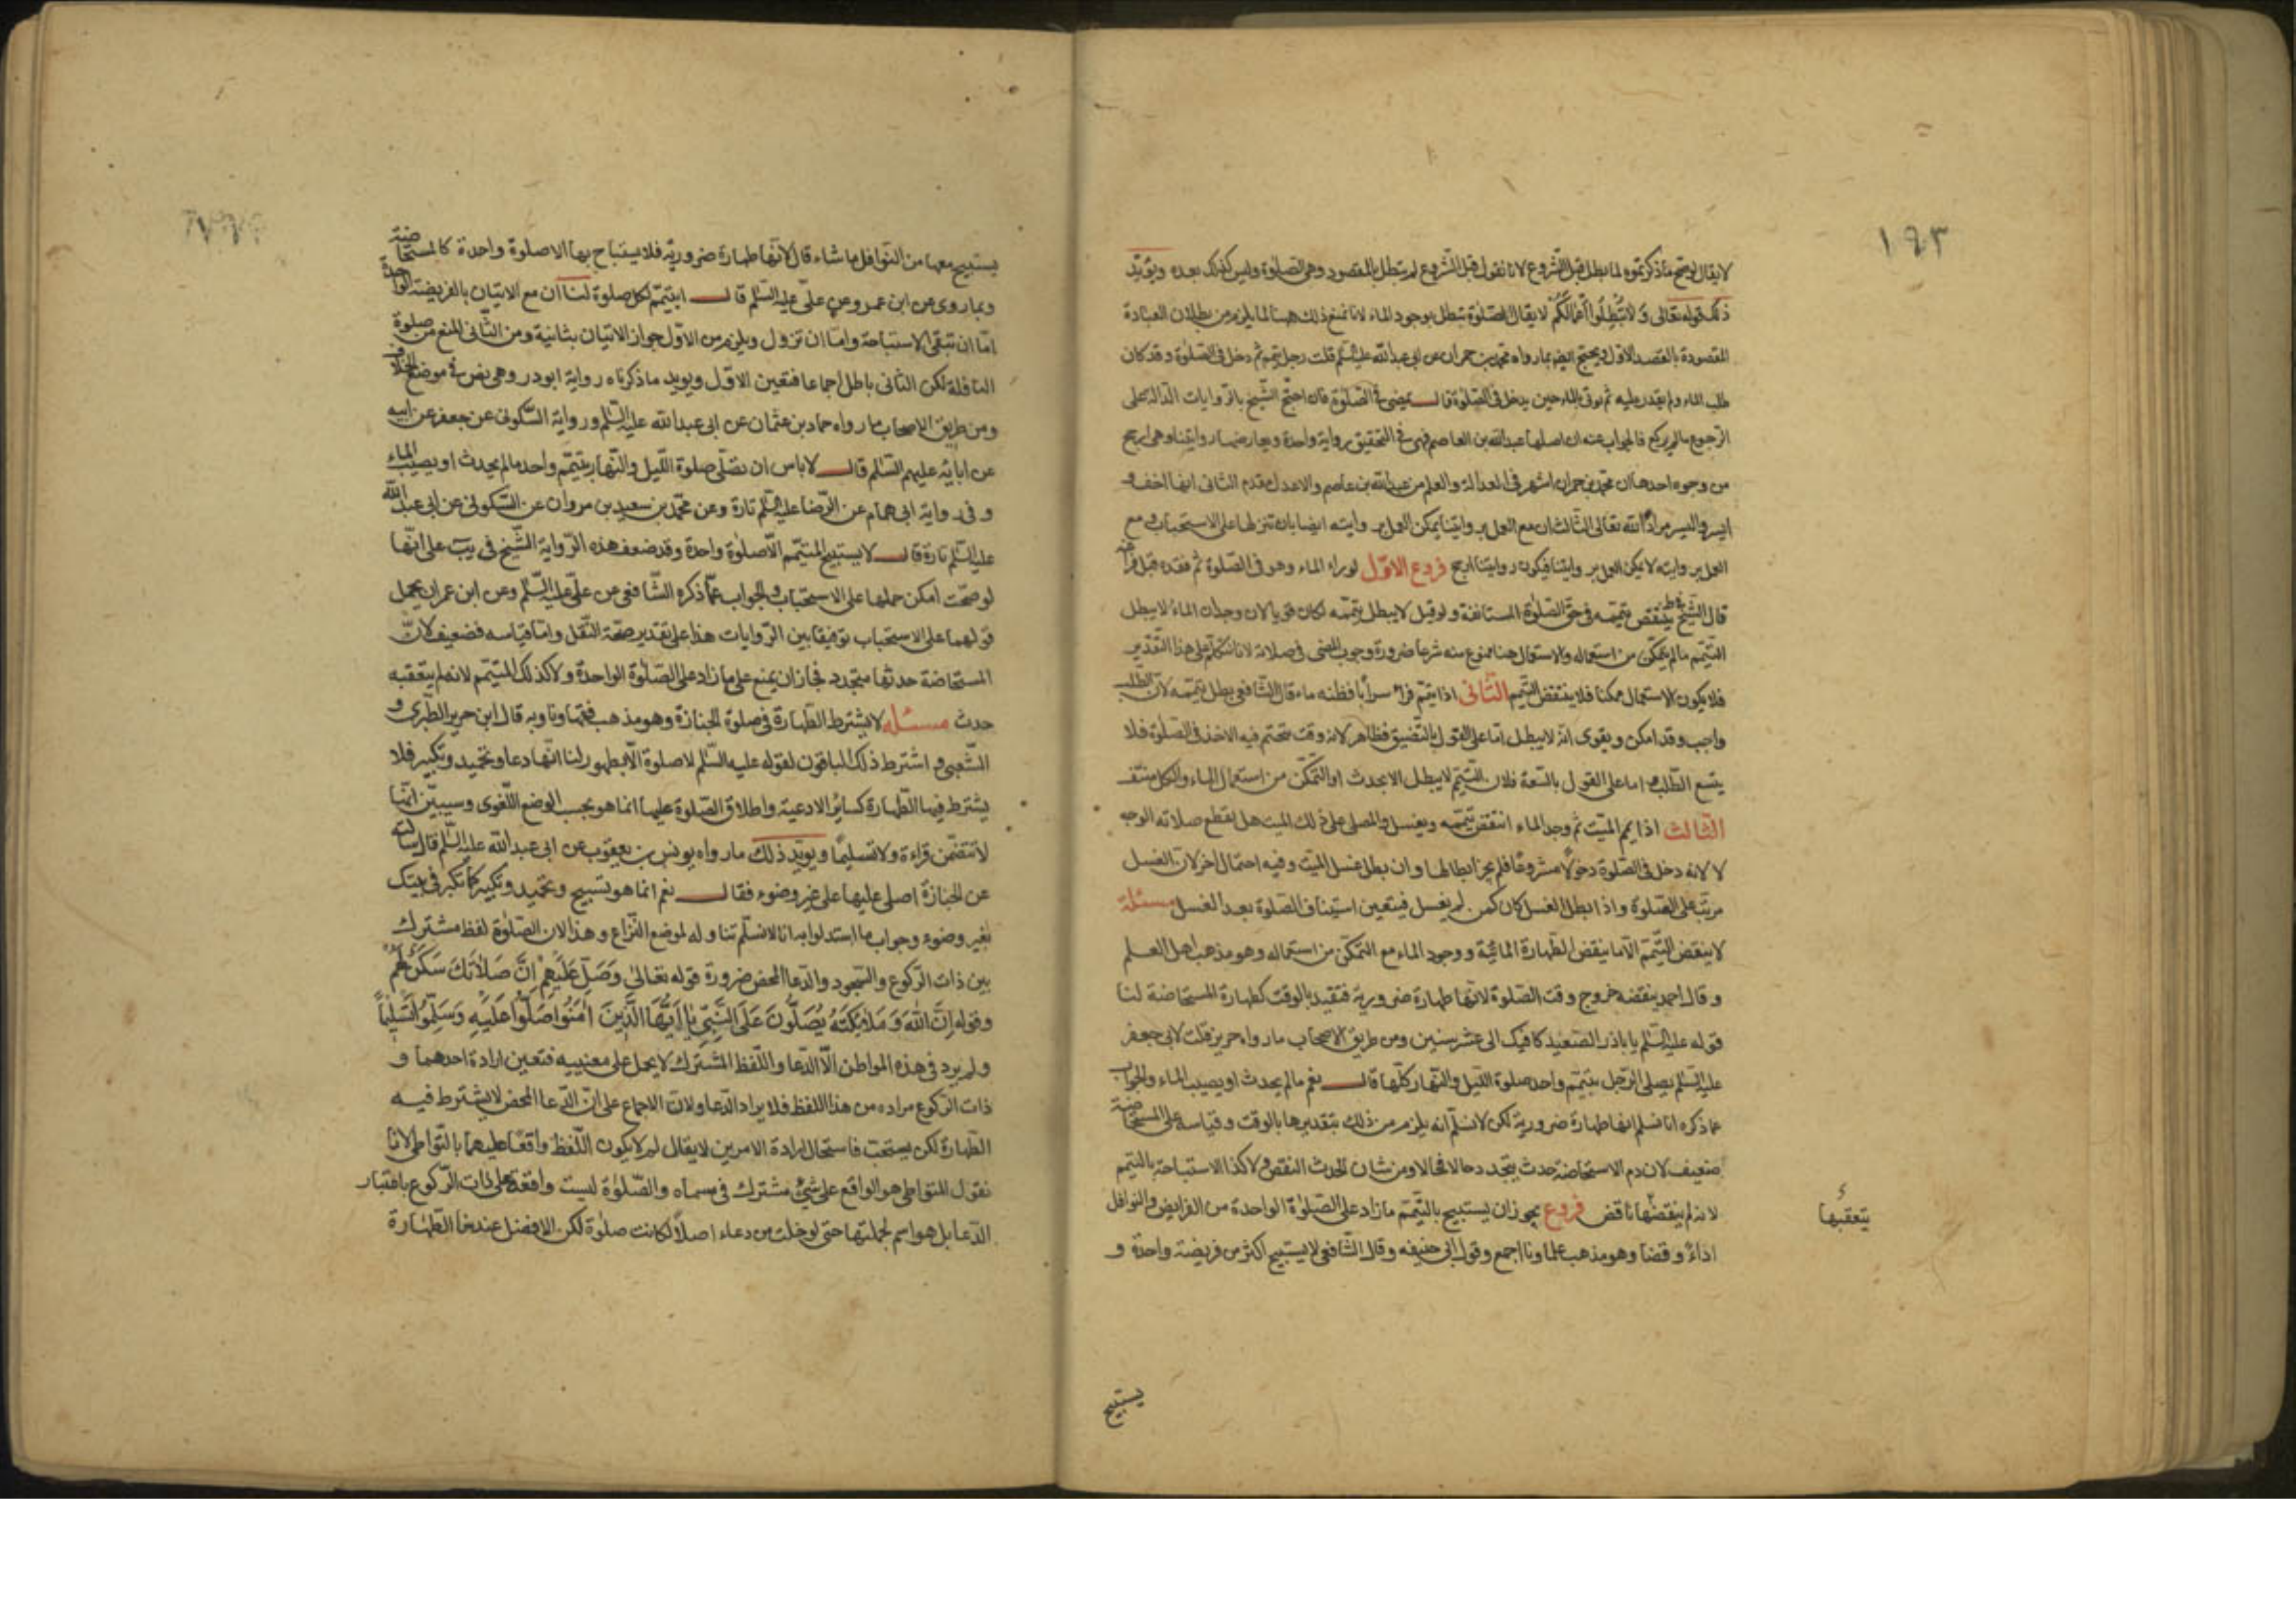 ١٩٣
لا يقال لو صح ما ذكرتموه لما بطل قبل الشروع لانا نقول قبل الشروع لم يتطل بالمقصود وهى الصلوة وليس كذلك بعده ويؤيد
ذلك قوله تعالى وَلَا تُبْطِلُوا أَعْمَالَكُمْ لا يقال الصلوة تبطل بوجود الماء لانا نمنع ذلك هنا لما يلزم من بطلان العبادة
المقصودة بالقصد الاول ويحتج ايضا بما رواه محمد بن حمران عن ابى عبد الله عليه السلم قلت رجل تيمم ثم دخل فى الصلوة وقد كان
طلب الماء ولم يقدر عليه ثم يوتى بالماء حين يدخل فى الصلوة قال يمضى فى الصلوة فان احتج الشيخ بالروايات الدالة على
الرجوع ما لم يركع فالجواب عنه ان اصلها عبد الله بن العاصم فهى فى التحقيق رواية واحدة ويعارضها روايتنا وهى ارجح
من وجوه احدها ان محمد بن حمران اشهر فى العدالة والعلم من عبد الله بن عاصم والاعدل مقدم الثانى انها اخف و
ايسر واليسر مراد الله تعالى الثالث ان مع العمل بروايتنا يمكن العمل بروايته ايضا بان تنزلها على الاستحباب ومع
العمل بروايته لا يمكن العمل بروايتنا فيكون روايتنا ارجح فروع الاول لو راى الماء وهو فى الصلوة ثم فقده قبل فراغه
قال الشيخ فى ط ينتقض تيممه فى حق الصلوة المستانفة ولو قيل لا يبطل تيممه لكان قويا لان وجدان الماء لا يبطل
التيمم ما لم يتمكن من استعماله والاستعمال هنا ممنوع منه شرعا ضرورة وجوب المضى فى صلاته لانا نتكلم على هذا التقدير
فلا يكون الاستعمال ممكنا فلا ينتقض التيمم الثانى اذا تيمم فراى سرابا فظنه ماء قال الشافعى بطل تيممه لان الطلب
واجب وقد امكن ويقوى انه لا يبطل اما على القول بالتضيق فظاهر لانه وقت يتحتم فيه الاخذ فى الصلوة فلا
يتسع الطلب واما على القول بالسعة فلان التيمم لا يبطل الا بحدث او التمكن من استعمال الماء والكل منتف
الثالث اذا يمم الميت ثم وجد الماء انتقض تيممه ويغسل والمصلى على ذلك الميت هل يقطع صلاته الوجه
لا لانه دخل فى الصلوة دخولا مشروعا فلم يجز ابطالها وان بطل غسل الميت وفيه احتمال اخر لان الغسل
مرتب على الصلوة واذا ابطل الغسل كان كمن لم يغسل فيتعين استيناف الصلوة بعد الغسل مسئلة
لا ينقض التيمم الا ما ينقض الطهارة المائية ووجود الماء مع التمكن من استعماله وهو مذهب اهل العلم
وقال احمد ينقضه خروج وقت الصلوة لانها طهارة ضرورية فتقيد بالوقت كطهارة المستحاضة لنا
قوله عليه السلم يا باذر الصعيد كافيك الى عشر سنين ومن طريق الاصحاب ما رواه حريز قلت لابى جعفر
عليه السلم يصلى الرجل بتيمم واحد صلوة الليل والنهار كلها قال نعم ما لم يحدث او يصيب الماء والجواب
عما ذكره انا نسلم انها طهارة ضرورية لكن لا نسلم انه يلزم من ذلك تقديرها بالوقت وقياسه على المستحاضة
ضعيف لان دم الاستحاضة حدث يتجدد حالا فحالا ومن شان الحدث النقض ولا كذا الاستباحة بالتيمم
لانه لم ينقضها ناقض فروع يجوز ان يستبيح بالتيمم ما زاد على الصلوة الواحدة من الفرايض والنوافل
اداءً وقضا وهو مذهب علماونا اجمع وقول ابى حنيفه وقال الشافعى لا يستبيح اكثر من فريضة واحدة و
يتعقبها
يستبيح
يستبيح معها من النوافل ما شاء قال لانها طهارة ضرورية فلا يستباح بها الا صلوة واحدة كالمستحاضة
وبما روى عن ابن عمر وعن على عليه السلم قال ايتيمم لكل صلوة لنا ان مع الاتيان بالفريضة الواحدة
اما ان تبقى الاستباحة واما ان تزول ويلزم من الاول جواز الاتيان بثانية ومن الثانى المنع من صلوة
النافلة لكن الثانى باطل اجماعا فتعين الاول ويويد ما ذكرناه رواية ابو در وهى نص فى موضع الخلاف
ومن طريق الاصحاب ما رواه حماد بن عثمان عن ابى عبد الله عليه السلم ورواية السكونى عن جعفر عن ابيه
عن ابائه عليهم السلم قال لا باس ان تصلى صلوة الليل والنهار بتيمم واحد ما لم يحدث او يصيب الماء
وفى رواية ابى همام عن الرضا عليه السلم تارة وعن محمد بن سعيد بن مروان عن السكونى عن ابى عبد الله
عليه السلم تارة قال لا يستبيح المتيمم الا صلوة واحدة وقد ضعف هذه الرواية الشيخ فى يب على انها
لو صحت امكن حملها على الاستحباب والجواب عما ذكره الشافعى عن على عليه السلم وعن ابن عمران يحمل
قولهما على الاستحباب توفيقا بين الروايات هذا على تقدير صحة النقل واما قياسه فضعيف لان
المستحاضة حدثها متجدد فجاز ان يمنع على ما زاد على الصلوة الواحدة ولا كذلك المتيمم لانه لم يتعقبه
حدث مسئله لا يشترط الطهارة فى صلوة الجنازة وهو مذهب فقهاونا وبه قال ابن جرير الطبرى و
الشعبى و اشترط ذلك الباقون لقوله عليه السلم لا صلوة الا بطهور لنا انها دعا وتحميد وتكبير فلا
يشترط فيها الطهارة كسائر الادعية واطلاق الصلوة عليها انما هو بحسب الوضع اللغوى وسيبين انها
لا تتضمن قراءة ولا تسليما ويويد ذلك ما رواه يونس بن يعقوب عن ابى عبد الله عليه السلم قال سالته
عن الجنازة اصلى عليها على غير وضوء فقال نعم انما هو تسبيح وتحميد وتكبير كما تكبر فى بيتك
بغير وضوء وجواب ما استدلوا به انا لا نسلم تناوله لموضع النزاع وهذا لان الصلوة لفظ مشترك
بين ذات الركوع والسجود والدعا المحض ضرورة قوله تعالى وَصَلِّ عَلَيْهِمْ اِنَّ صَلَاتَكَ سَكَنٌ لَهُمْ
وقوله اِنَّ اللهَ وَمَلٰئِكَتَهُ يُصَلُّونَ عَلَى النَّبِىِّ يَا اَيُّهَا الَّذِينَ اٰمَنُوا صَلُّوا عَلَيْهِ وَسَلِّمُوا تَسْلِيمًا
ولم يرد فى هذه المواطن الا الدعا واللفظ المشترك لا يحمل على معنييه فتعين ارادة احدهما و
ذات الركوع مراده من هذا اللفظ فلا يراد الدعا ولان الاجماع على ان الدعا المحض لا يشترط فيه
الطهارة لكن يستحب فاستحال ارادة الامرين لا يقال لم لا يكون اللفظ واقعا عليهما بالتواطى لانا
نقول المتواطى هو الواقع على شئ مشترك فى مسماه والصلوة ليست واقعة على ذات الركوع باعتبار
الدعا بل هو اسم لجملتها حتى لو خلت من دعاء اصلًا لكانت صلوة لكن الافضل عندنا الطهارة